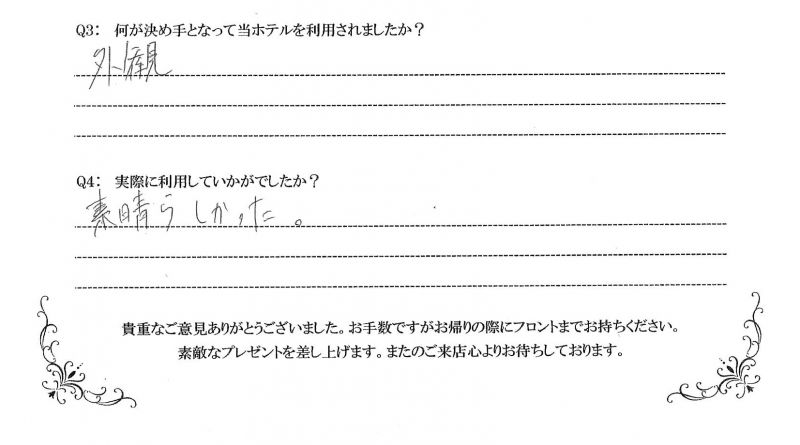 Q3: 何が決め手となって当ホテルを利用されましたか？
外観
Q4: 実際に利用していかがでしたか？
素晴らしかった。
貴重なご意見ありがとうございました。お手数ですがお帰りの際にフロントまでお持ちください。
素敵なプレゼントを差し上げます。またのご来店心よりお待ちしております。